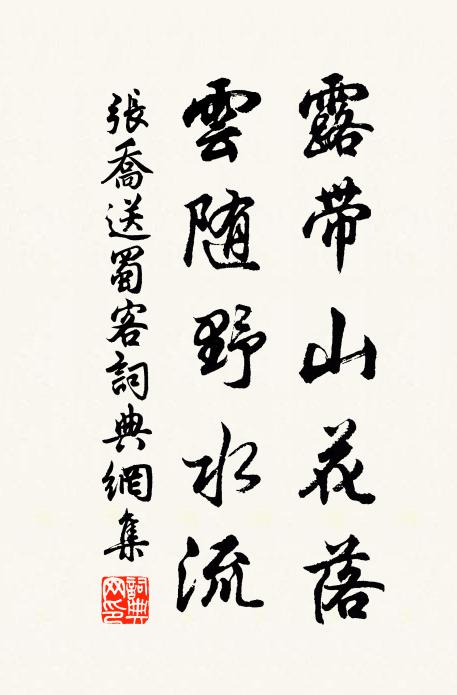 露帶山花落
雲随野水流
張喬送蜀客詞典網集
詞典网印